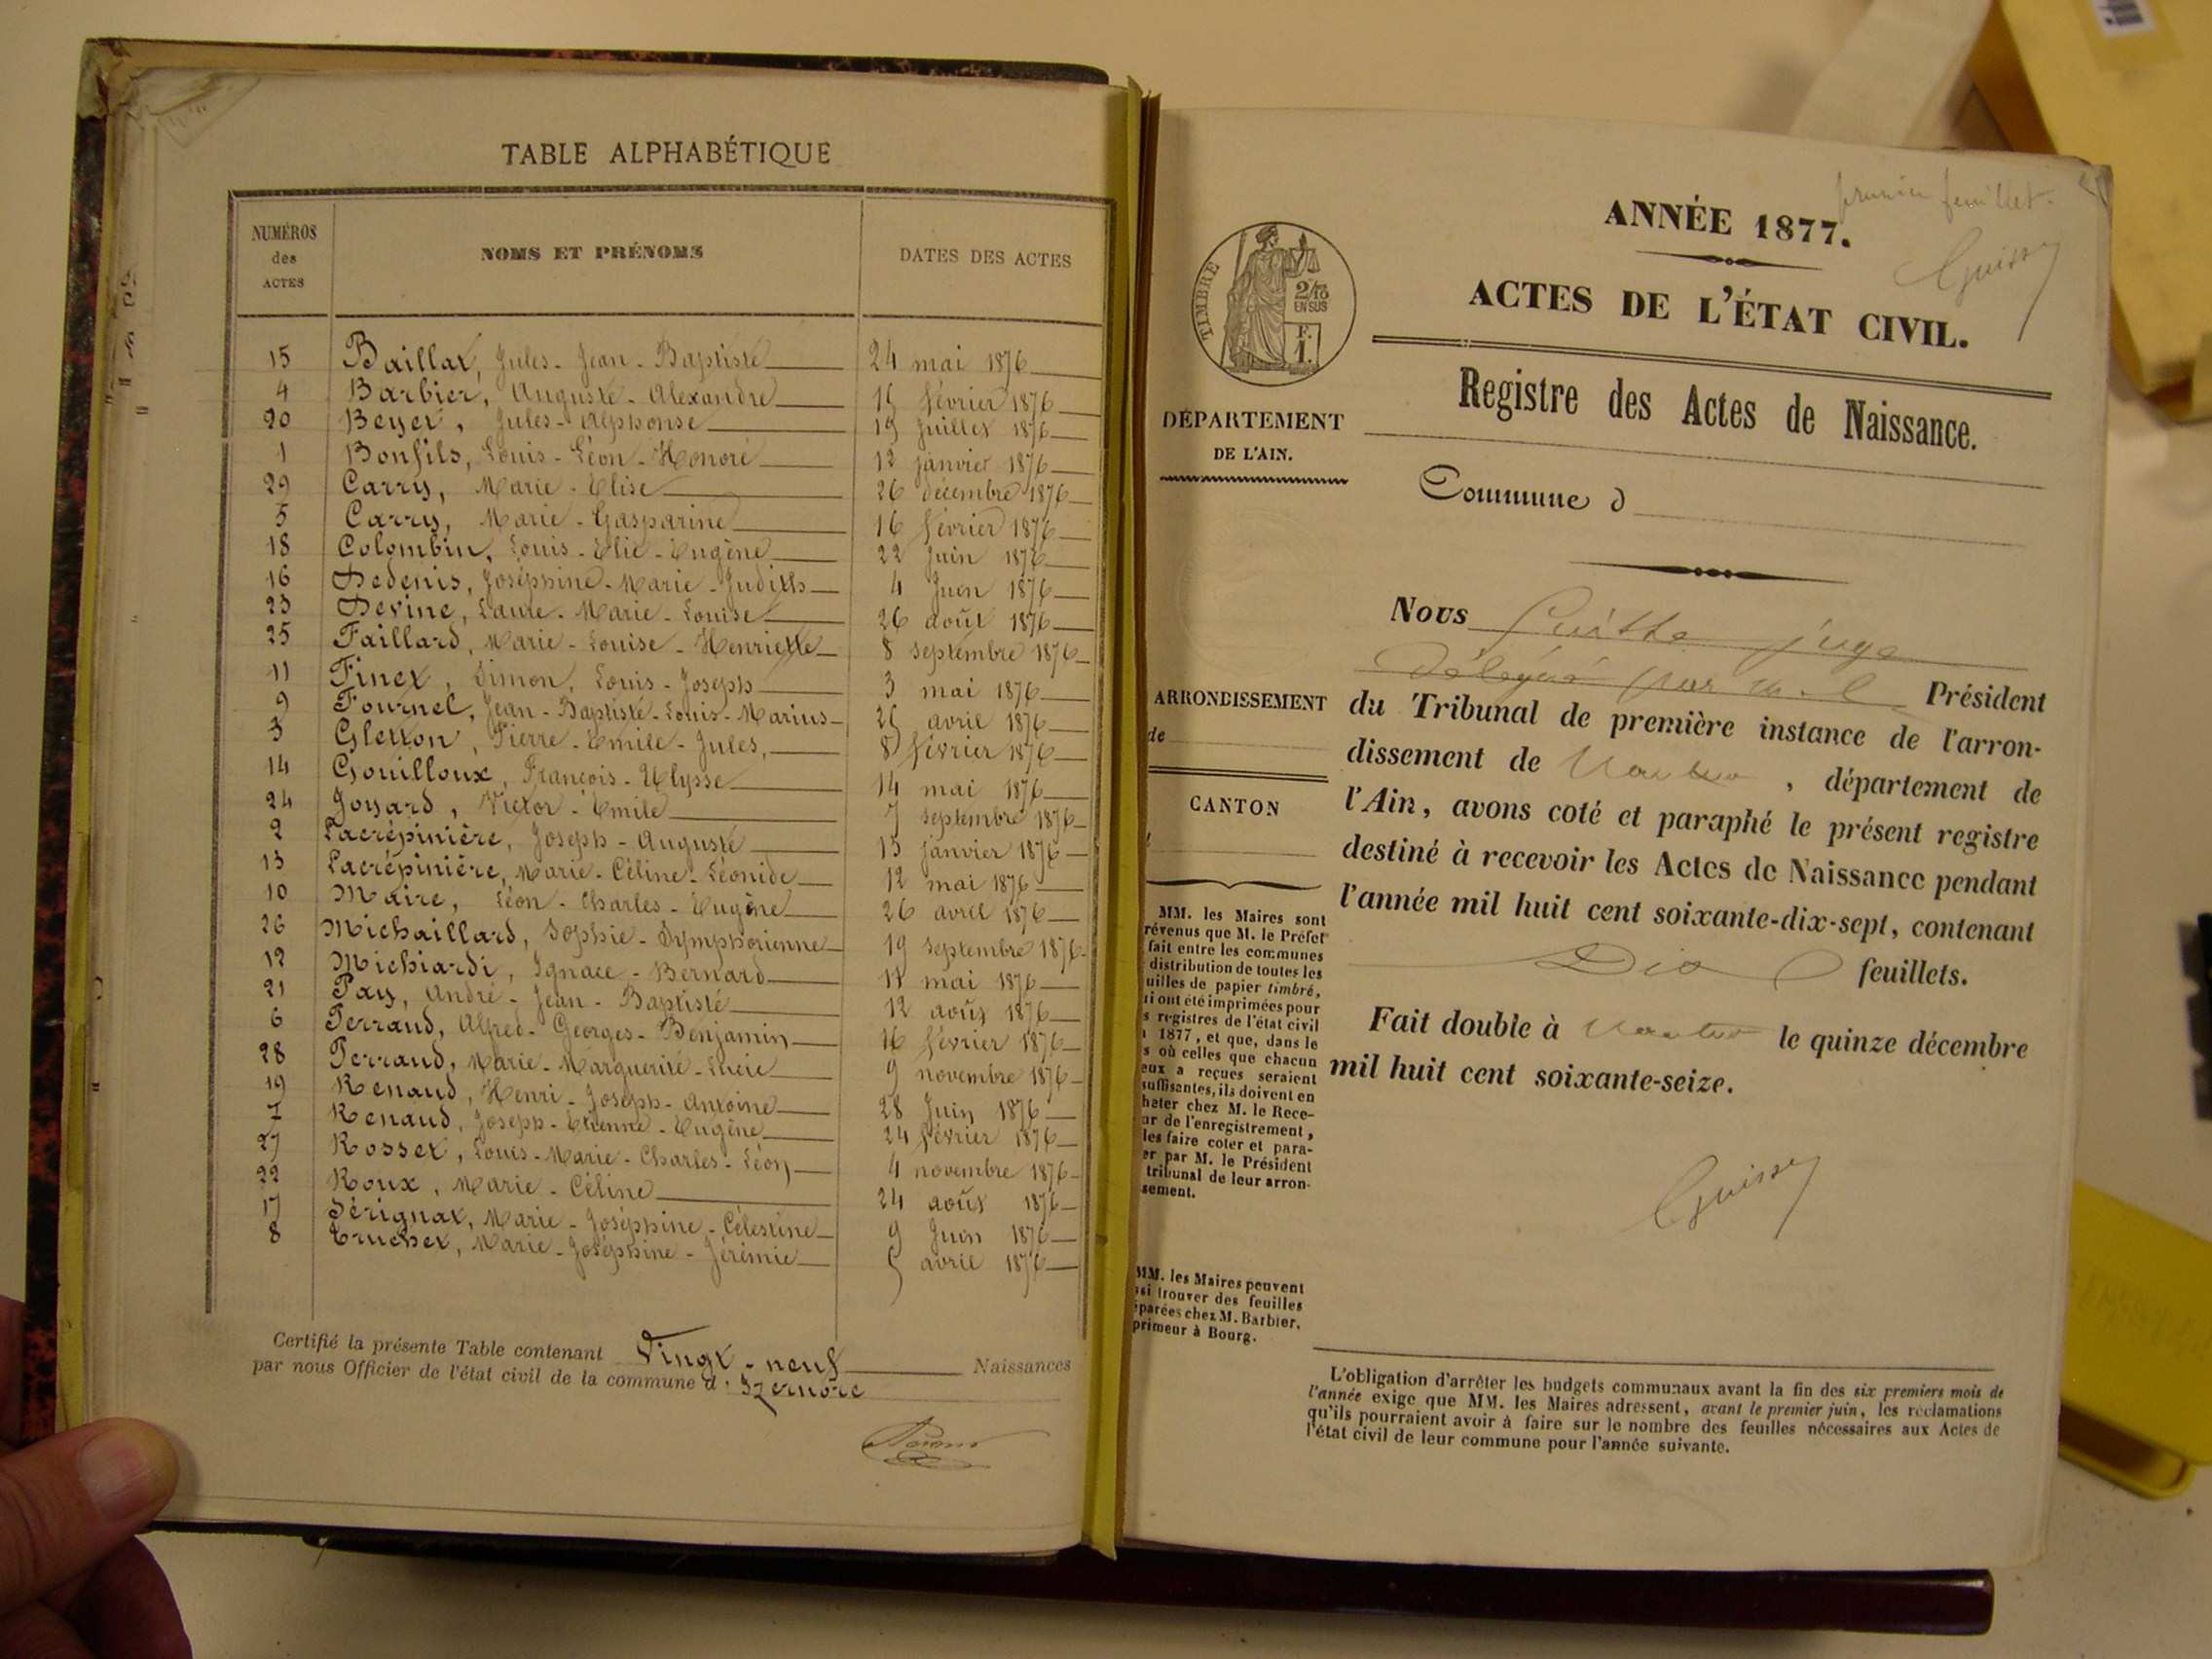 TABLE ALPHABÉTIQUE
NUMÉROS des ACTES NOMS ET PRÉNOMS DATES DES ACTES
15 Baillat, Jules - Jean - Baptiste 24 mai 1876
4 Barbier, Auguste - Alexandre février 1876
20 Beyet, Jules - Alphonse 19 juillet 1876
1 Bonfils, Louis - Léon - Honoré 12 janvier 1876
29 Carry, Marie - Elise 26 décembre 1876
5 Carry, Marie - Gasparine 16 février 1876
18 Colombin, Louis - Elie - Eugène 22 Juin 1876
16 Dedenis, Joséphine - Marie - Judith 4 Juin 1876
23 Devine, Laure - Marie - Louise 26 août 1876
25 Faillard, Marie - Louise - Henriette 8 septembre 1876
11 Finet, Simon, Louis - Joseph 3 mai 1876
9 Fournel, Jean - Baptiste - Louis - Marius avril 1876
3 Gletton, Pierre - Emile - Jules, 8 février 1876
14 Gouilloux, François - Ulysse 14 mai 1876
24 Joyard, Victor - Emile 7 septembre 1876
2 Lacrépinière, Joseph - Auguste 15 janvier 1876
13 Lacrépinière, Marie - Céline - Léonide 12 mai 1876
10 Maire, Léon - Charles - Eugène 26 avril 1876
26 Michaillard, Sophie - Symphorienne 19 septembre 1876
12 Michiardi, Ignace - Bernard 11 mai 1876
21 Pay, André - Jean - Baptiste 12 août 1876
6 Perraud, Alfred - Georges - Benjamin 16 février 1876
28 Perraud, Marie - Marguerite - Lucie 9 novembre 1876
19 Renaud, Henri - Joseph - Antoine 28 Juin 1876
7 Renaud, Joseph - Etienne - Eugène 24 février 1876
27 Rosset, Louis - Marie - Charles - Léon 4 novembre 1876
22 Roux, Marie - Céline 24 août 1876
17 Sérignat, Marie - Joséphine - Célestine 9 Juin 1876
8 Truchet, Marie - Joséphine - Jérémie 5 avril 1876
Certifié la présente Table contenant Vingt - neuf Naissances
par nous Officier de l'état civil de la commune d'Izernore
premier feuillet.
ANNÉE 1877.
TIMBRE
2/10
EN SUS
F.
1.
ACTES DE L'ÉTAT CIVIL.
Registre des Actes de Naissance.
DÉPARTEMENT
DE L'AIN.
Commune d
Nous juge
Délégué par M. le Président
du Tribunal de première instance de l'arron-
dissement de Nantua, département de
l'Ain, avons coté et paraphé le présent registre
destiné à recevoir les Actes de Naissance pendant
l'année mil huit cent soixante-dix-sept, contenant
Dix feuillets.
Fait double à Nantua le quinze décembre
mil huit cent soixante-seize.
ARRONDISSEMENT
de
CANTON
MM. les Maires sont
révenus que M. le Préfet
fait entre les communes
distribution de toutes les
uilles de papier timbré,
ui ont été imprimées pour
s registres de l'état civil
1877, et que, dans le
s où celles que chacun
eux a reçues seraient
suffisantes, ils doivent en
heter chez M. le Rece-
ur de l'enregistrement,
les faire coter et para-
er par M. le Président
tribunal de leur arron-
sement.
MM. les Maires peuvent
ssi trouver des feuilles
éparées chez M. Barbier,
primeur à Bourg.
L'obligation d'arrêter les budgets communaux avant la fin des six premiers mois de
l'année exige que MM. les Maires adressent, avant le premier juin, les réclamations
qu'ils pourraient avoir à faire sur le nombre des feuilles nécessaires aux Actes de
l'état civil de leur commune pour l'année suivante.